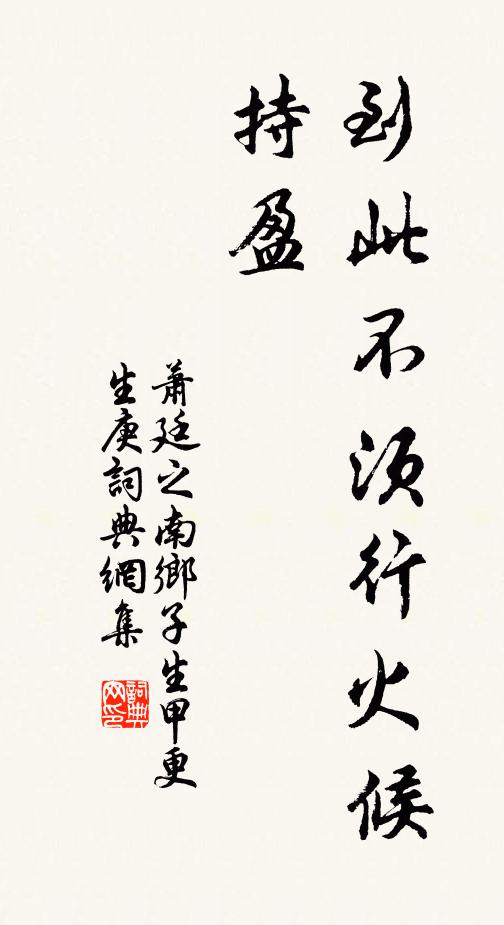 到此不須行火候
持盈
蕭廷之南鄉子生甲更
生庚詞典網集
詞典
网印